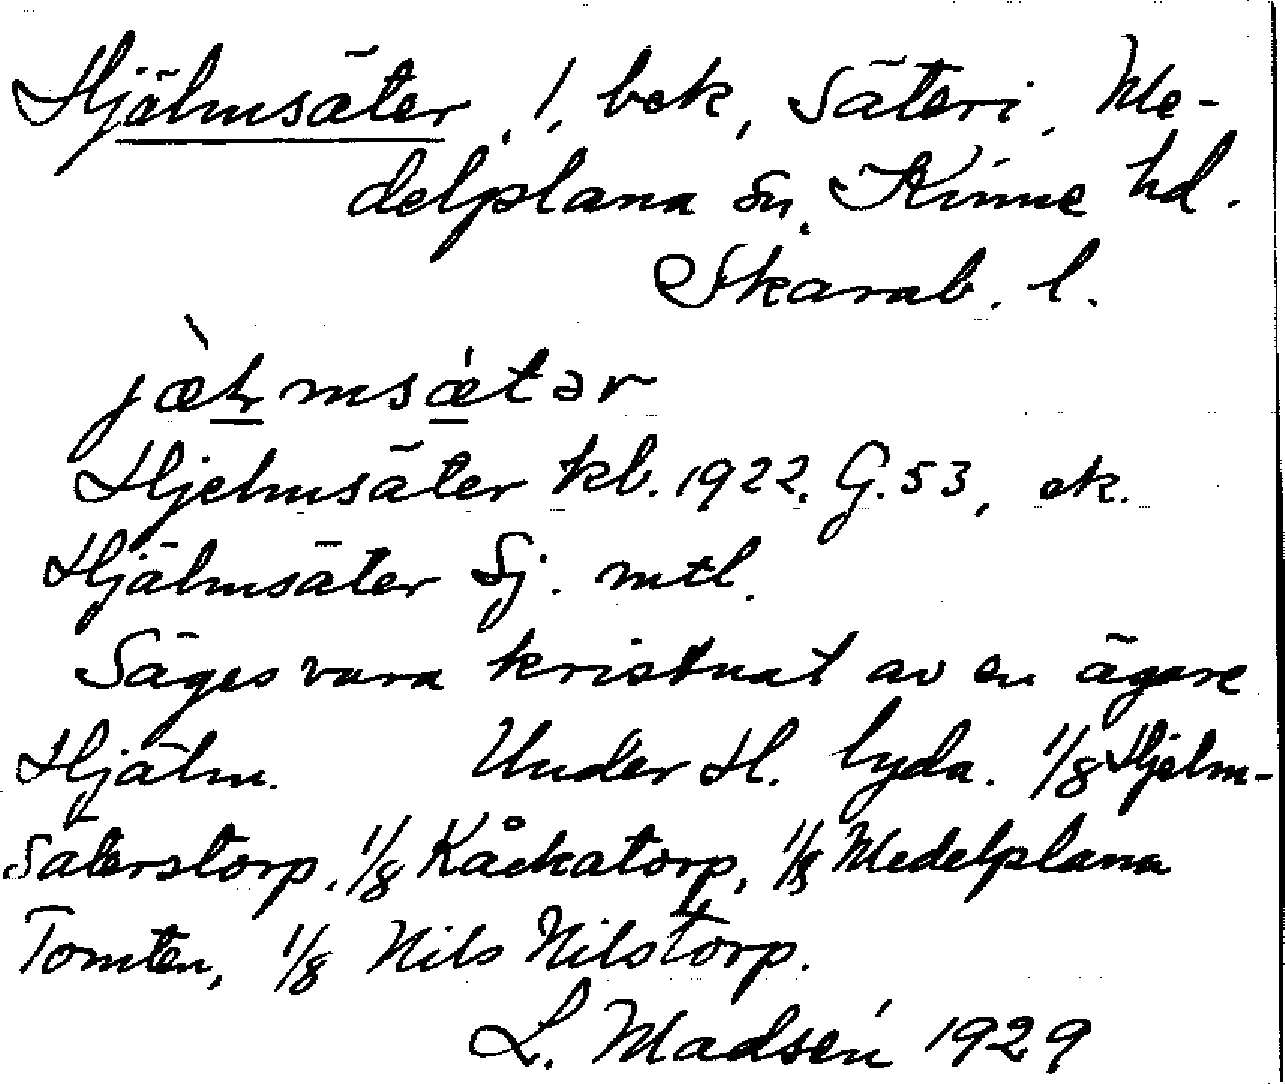 Hjälmsäter, 1, bek, Säteri, Me-
delplana sn. Kinne hd.
Skarab. l.
jæ̀ɫmsǽtər
Hjelmsäter kb. 1922. G. 53, ek.
Hjälmsäter Sj. mtl.
Säges vara kristnat av en ägare
Hjälm. Under H. lyda. 1/8 Hjelm-
säterstorp, 1/8 Kåckatorp, 1/8 Medelplana
Tomten, 1/8 Nils Nilstorp.
L. Madsén 1929